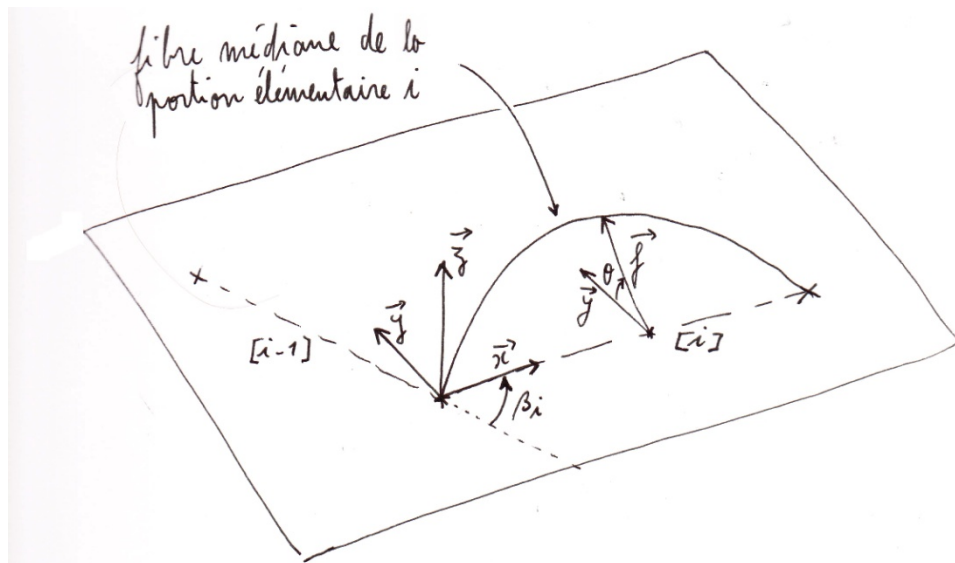 fibre médiane de la
portion élémentaire i
z
f
θ
y
y
[i-1]
x
[i]
βi